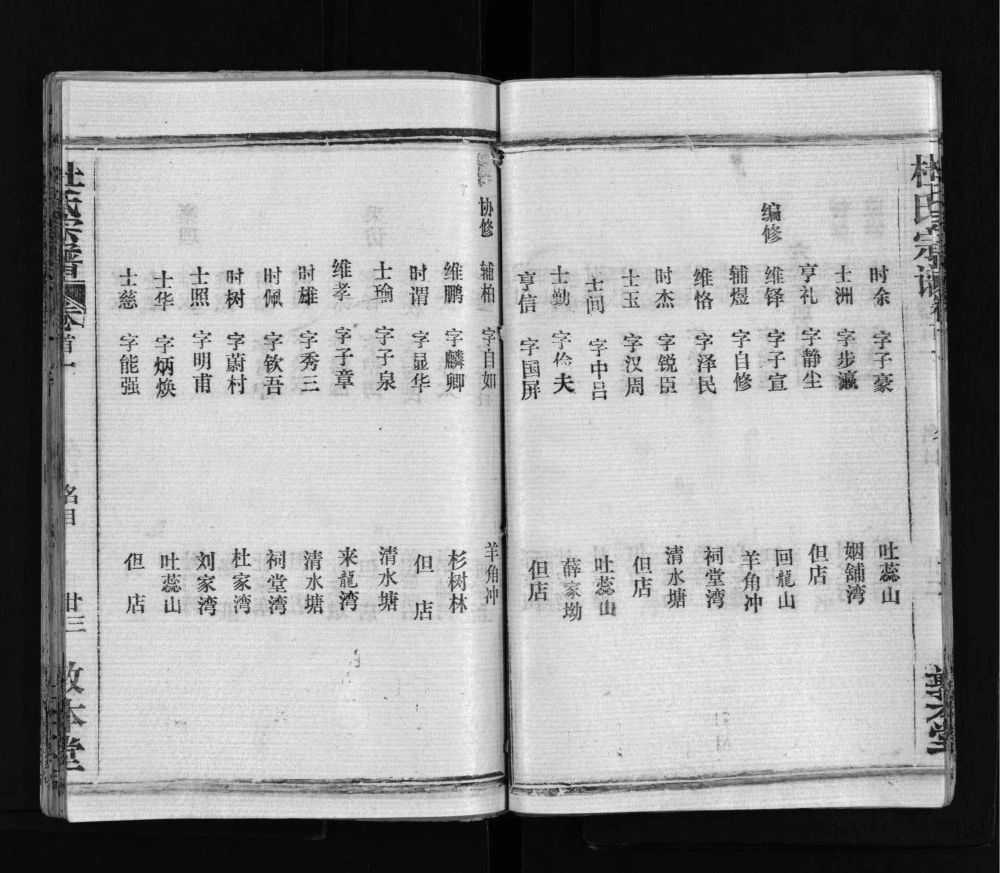 杜氏宗谱
时余 字子豪 吐蕊山
士洲 字步瀛 姻舖湾
亨礼 字静尘 但店
编修
维铎 字子宣 回龍山
辅煜 字自修 羊角冲
维恪 字泽民 祠堂湾
时杰 字锐臣 清水塘
士玉 字汉周 但店
士闻 字中吕 吐蕊山
士勤 字俭夫 薛家坳
亨信 字国屏 但店
协修
辅柏 字自如 羊角冲
维鹏 字麟卿 杉树林
时谓 字显华 但店
士瑜 字子泉 清水塘
维孝 字子章 来龍湾
时雄 字秀三 清水塘
时佩 字钦吾 祠堂湾
时树 字蔚村 杜家湾
士照 字明甫 刘家湾
士华 字炳焕 吐蕊山
士慈 字能强 但店
杜氏宗普 卷首一 名目 廿三 敦本堂